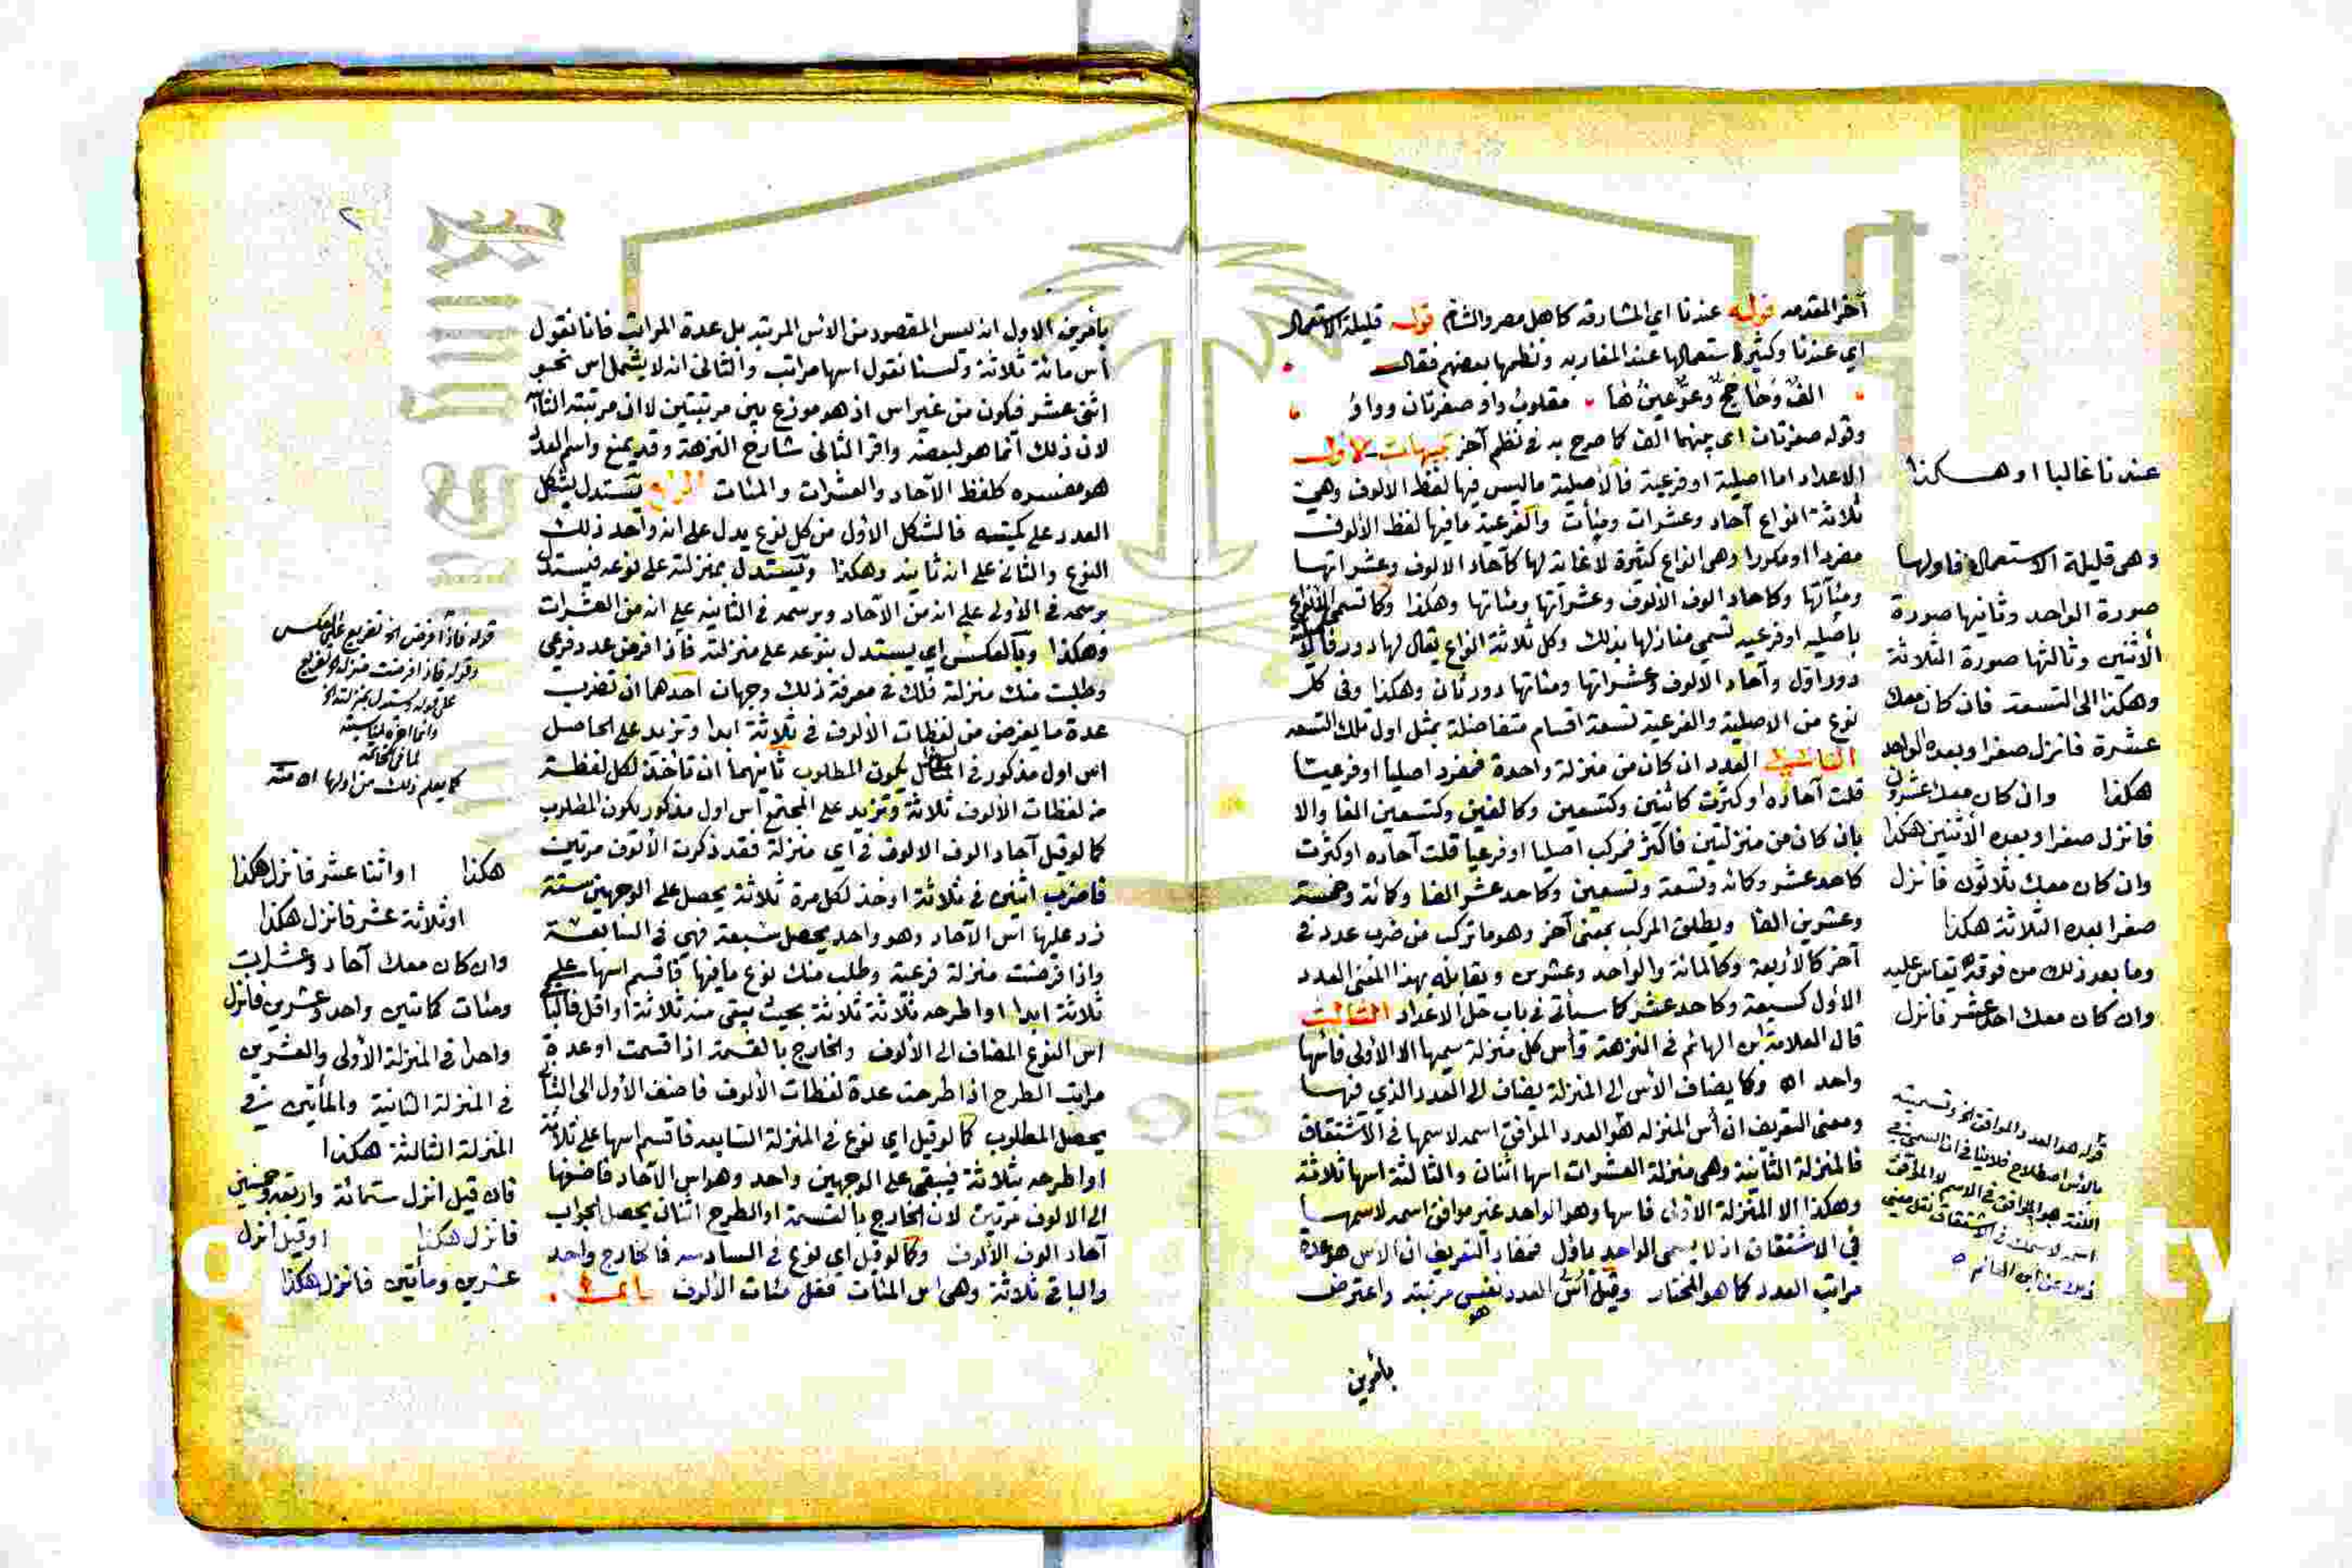 آخر المقدمه قوله عندنا اي المشارقه كاهل مصر والشام قوله قليلة الاستعمال
اي عندنا وكثير استعمالها عند المغاربه ونظمها بعضهم فقال
وقوله صفرتان اي بينهما الف كما صرح به في نظم آخر تنبيهات الاول
الاعداد اما اصلية او فرعية فالاصلية ما ليس فيها لفظ الالوف وهي
ثلاثة انواع آحاد وعشرات ومئات والفرعية ما فيها لفظ الالوف
مفردا او مكررا وهي انواع كثيرة لا غاية لها كآحاد الالوف وعشراتها
ومئآتها وكاحاد الوف الالوف وعشرآتها ومئاتها وهكذا وكما تسمى الانواع
باصليه او فرعيه تسمى منازلها بذلك وكل ثلاثة انواع يقال لها دور فالاصلية
دور اول وآحاد الالوف وعشراتها ومئاتها دور ثان وهكذا وفي كل
نوع من الاصلية والفرعية تسعة اقسام متفاضلة بمثل اول تلك التسعه
الثاني العدد ان كان من منزلة واحدة فمفرد اصليا او فرعيا
قلت آحاده او كثرت كاثنين وكتسعين وكالفين وكتسعين الفا والا
بان كان من منزلتين فاكثر فمركب اصليا او فرعيا قلت آحاده او كثرت
كاحد عشر وكمائه وتسعة وتسعين وكاحد عشر الفا وكمائة وخمسة
وعشرين الفا ويطلق المركب بمعنى آخر وهو ما تركب من ضرب عدد في
آخر كالاربعة وكالمائة والواحد وعشرين ويقابله بهذا المعنى العدد
الاول كسبعة وكاحد عشر كما سيأتي في باب حل الاعداد الثالث
قال العلامة ابن الهائم في النزهة وأس كل منزلة سميها الا الاولى فأسها
واحد اه وكما يضاف الاس الى المنزلة يضاف الى العدد الذي فيها
ومعنى التعريف ان أس المنزله هو العدد الموافق اسمه لاسمها في الاشتقاق
فالمنزلة الثانية وهي منزلة العشرات اسها اثنان والثالثة اسها ثلاثة
وهكذا الا المنزلة الاولى فاسها وهو الواحد غير موافق اسمه لاسمها
في الاشتقاق اذ لا يسمى الواحد باول فمفاد التعريف ان الاس هو عدة
مراتب العدد كما هو المختار وقيل أس العدد نفس مرتبته واعترض
هو
بأمرين
عندنا غالبا او هكذا
وهي قليلة الاستعمال فاولها
صورة الواحد وثانيها صورة
الاثنين وثالثها صورة الثلاثة
وهكذا الى التسعة فان كان معك
عشرة فانزل صفرا وبعده الواحد
هكذا وان كان معك عشرون
فانزل صفرا وبعده الاثنين هكذا
وان كان معك ثلاثون فانزل
صفرا بعده الثلاثة هكذا
وما بعد ذلك من فوقه يقاس عليه
وان كان معك احد عشر فانزل
قوله هو العدد الموافق الخ وتسميته
بأمرين الاول انه ليس المقصود من الاس المرتبه بل عدة المراتب فانا نقول
أس مائة ثلاثة ولسنا نقول اسها مراتب والثاني انه لا يشمل اس نحو
اثني عشر فيكون من غير اس اذ هو موزع بين مرتبتين لا في مرتبته الثا
لان ذلك انما هو لبعضه واقر الثاني شارح النزهة وقد يمنع واسم العدد
هو مفسره كلفظ الآحاد والعشرات والمئات الرابع يستدل بشكل
العدد على كميته فالشكل الاول من كل نوع يدل على انه واحد ذلك
النوع والثاني على انه ثانيه وهكذا ويستدل بمنزلته على نوعه فيستدل
برسمه في الاولى على انه من الآحاد وبرسمه في الثانيه على انه من العشرات
وهكذا وبالعكس اي يستدل بنوعه على منزلته فاذا فرض عدد فرعي
وطلبت منك منزلة فلك في معرفة ذلك وجهان احدهما ان تضرب
عدة ما يفرض من لفظات الالوف في ثلاثة ابدا وتزيد على الحاصل
اس اول مذكور في السائل يكون المطلوب ثانيهما ان تأخذ لكل لفظة
من لفظات الالوف ثلاثة وتزيد على المجتمع أس اول مذكور يكون المطلوب
كما لو قيل آحاد الوف الالوف في اي منزلة فقد ذكرت الالوف مرتين
فاضرب اثنين في ثلاثة او خذ لكل مرة ثلاثة يحصل على الوجهين ستة
زد عليها اس الآحاد وهو واحد يحصل سبعة فهي في السابعة
واذا فرضت منزلة فرعية وطلب منك نوع ما فيها فاقسم اسها على
ثلاثة ابدا او اطرحه ثلاثة ثلاثة بحيث يبقى منه ثلاثة او اقل فالباقي
اس النوع المضاف الى الالوف والخارج بالقسمة اذا قسمت او عدة
مرات الطرح اذا طرحت عدة لفظات الالوف فاضف الاول الى الثاني
يحصل المطلوب كما لو قيل اي نوع في المنزلة السابعه فاقسم اسها على ثلاثة
او اطرحه بثلاثة فيبقى على الوجهين واحد وهو اس الآحاد فاضفها
الى الالوف مرتين لان الخارج بالقسمة او الطرح اثنان يحصل الجواب
آحاد الوف الالوف وكما لو قيل اي نوع في السادسه فالخارج واحد
والباقي ثلاثة وهي اس المئات فقل مئات الالوف
قوله فاذا فرض الخ تفريع على العكس
كما يعلم ذلك من اولها اه منه
هكذا او اثنا عشر فانزل هكذا
او ثلاثة عشر فانزل هكذا
وان كان معك آحاد وعشرات
ومئات كمائتين واحد وعشرين فانزل
واحدا في المنزلة الأولى والعشرين
في المنزلة الثانية والمأتين في
المنزلة الثالثة هكذا
فان قيل انزل ستمائة واربعة وخمسين
فانزل هكذا او قيل انزل
عشرين ومأتين فانزل هكذا